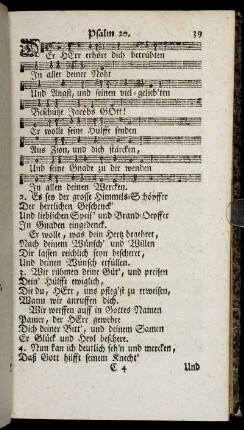 Psalm 20. 39
DEr HErr erhör dich betrübten
In aller deiner Noht
Und Angst, und seinen viel-gelieb'ten
Beschütz Jacobs GOtt!
Er wolle seine Hülffe senden
Aus Zion, und dich stärcken,
Und seine Gnade zu dir wenden
In allen deinen Wercken.
2. Es sey der grosse Himmels-Schöpffer
Der herrlichen Geschenck'
Und lieblichen Speiß' und Brand-Oepffer
In Gnaden eingedenck.
Er wolle, was dein Hertz begehret,
Nach deinem Wünsch' und Willen
Dir lassen reichlich seyn bescheret,
Und deinen Wünsch erfüllen.
3. Wir rühmen deine Güt', und preisen
Dein' Hülffe ewiglich,
Die du, HErr, uns pfleg'st zu erweisen,
Wann wir anruffen dich.
Wir werffen auff in Gottes Namen
Panier, der HErr gewehre
Dich deiner Bitt', und deinem Samen
Er Glück und Heyl beschere.
4. Nun kan ich deutlich seh'n und mercken,
Daß Gott hilfft seinem Knecht'
C 4 Und